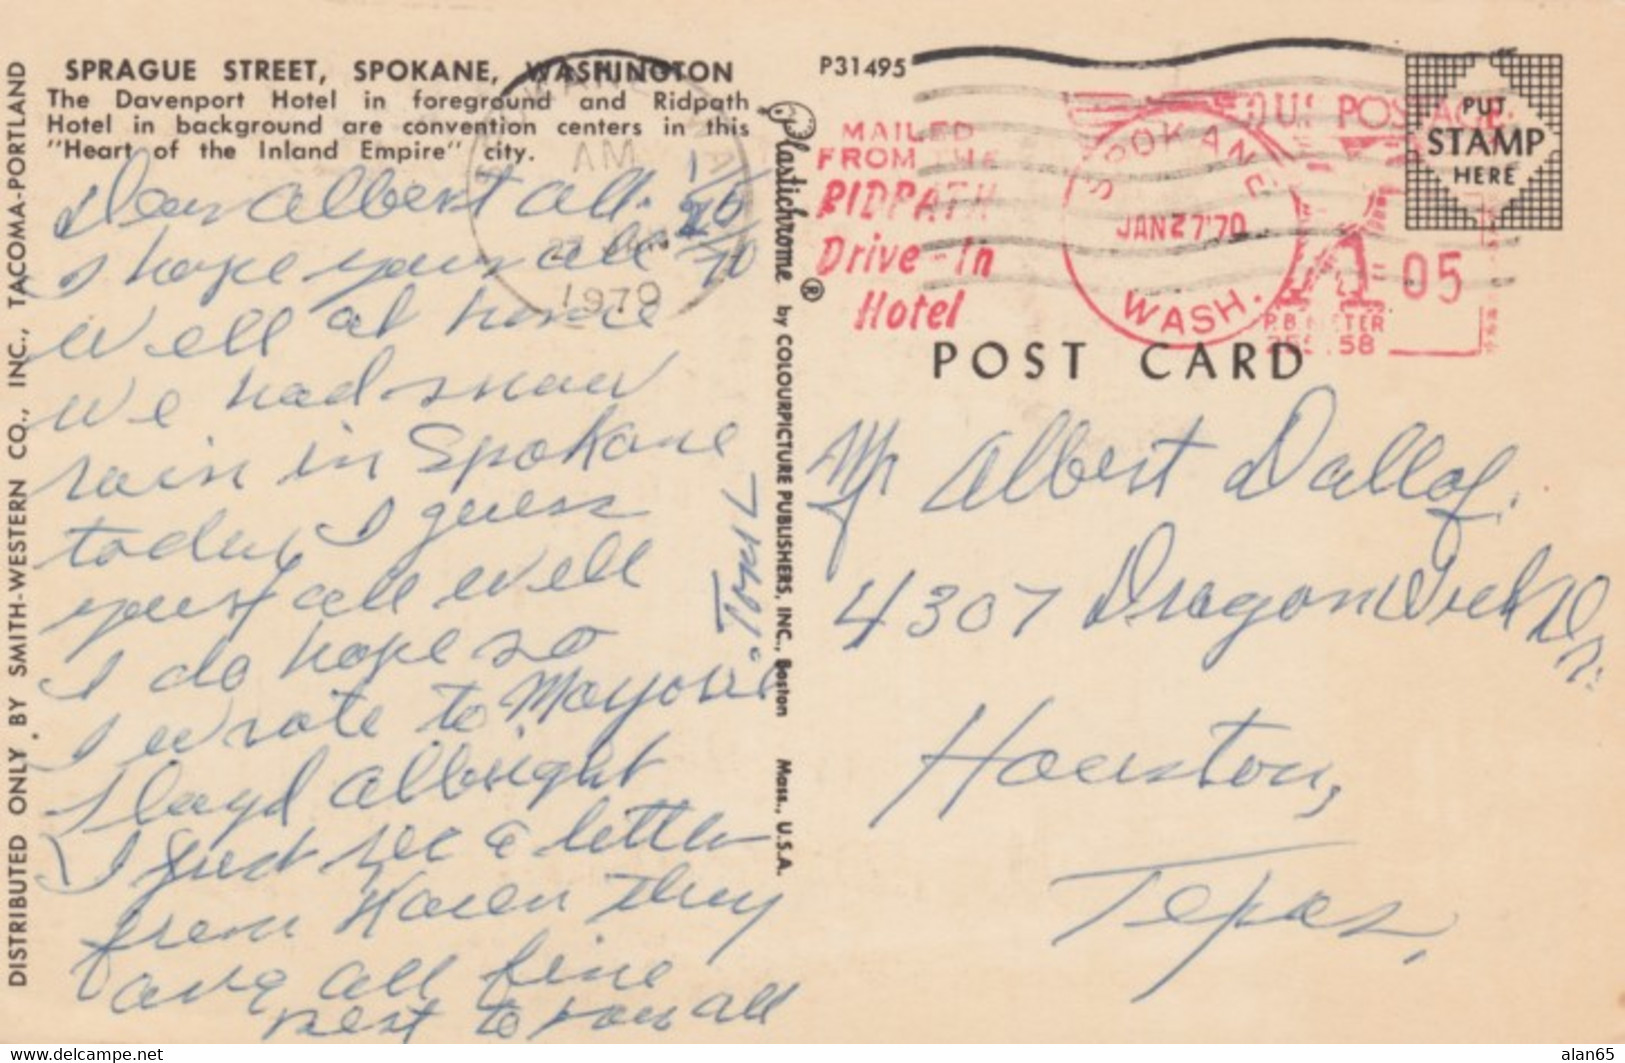 SPRAGUE STREET, SPOKANE, WASHINGTON
The Davenport Hotel in foreground and Ridpath
Hotel in background are convention centers in this
"Heart of the Inland Empire" city.
DISTRIBUTED ONLY BY SMITH-WESTERN CO., INC., TACOMA-PORTLAND
AM
1970
Dear Albert all.
I hope your all
Well at home
We had snow
rain in Spokane
today I guess
your all well
I do hope so
I wrote to Marjorie
Lloyd Albright
I just rec a letter
from Karen They
are all fine
best to you all
Plastichrome ® by COLOURPICTURE PUBLISHERS, INC., Boston Mass., U.S.A.
P31495
MAILED
FROM THE
RIDPATH
Drive-In
Hotel
SPOKANE
JAN 27'70
WASH.
U.S. POSTAGE
05
P.B. METER
PUT
STAMP
HERE
POST CARD
Mr Albert Dallof.
4307 DragonWick Dr.
Houston,
Texas,
alan65